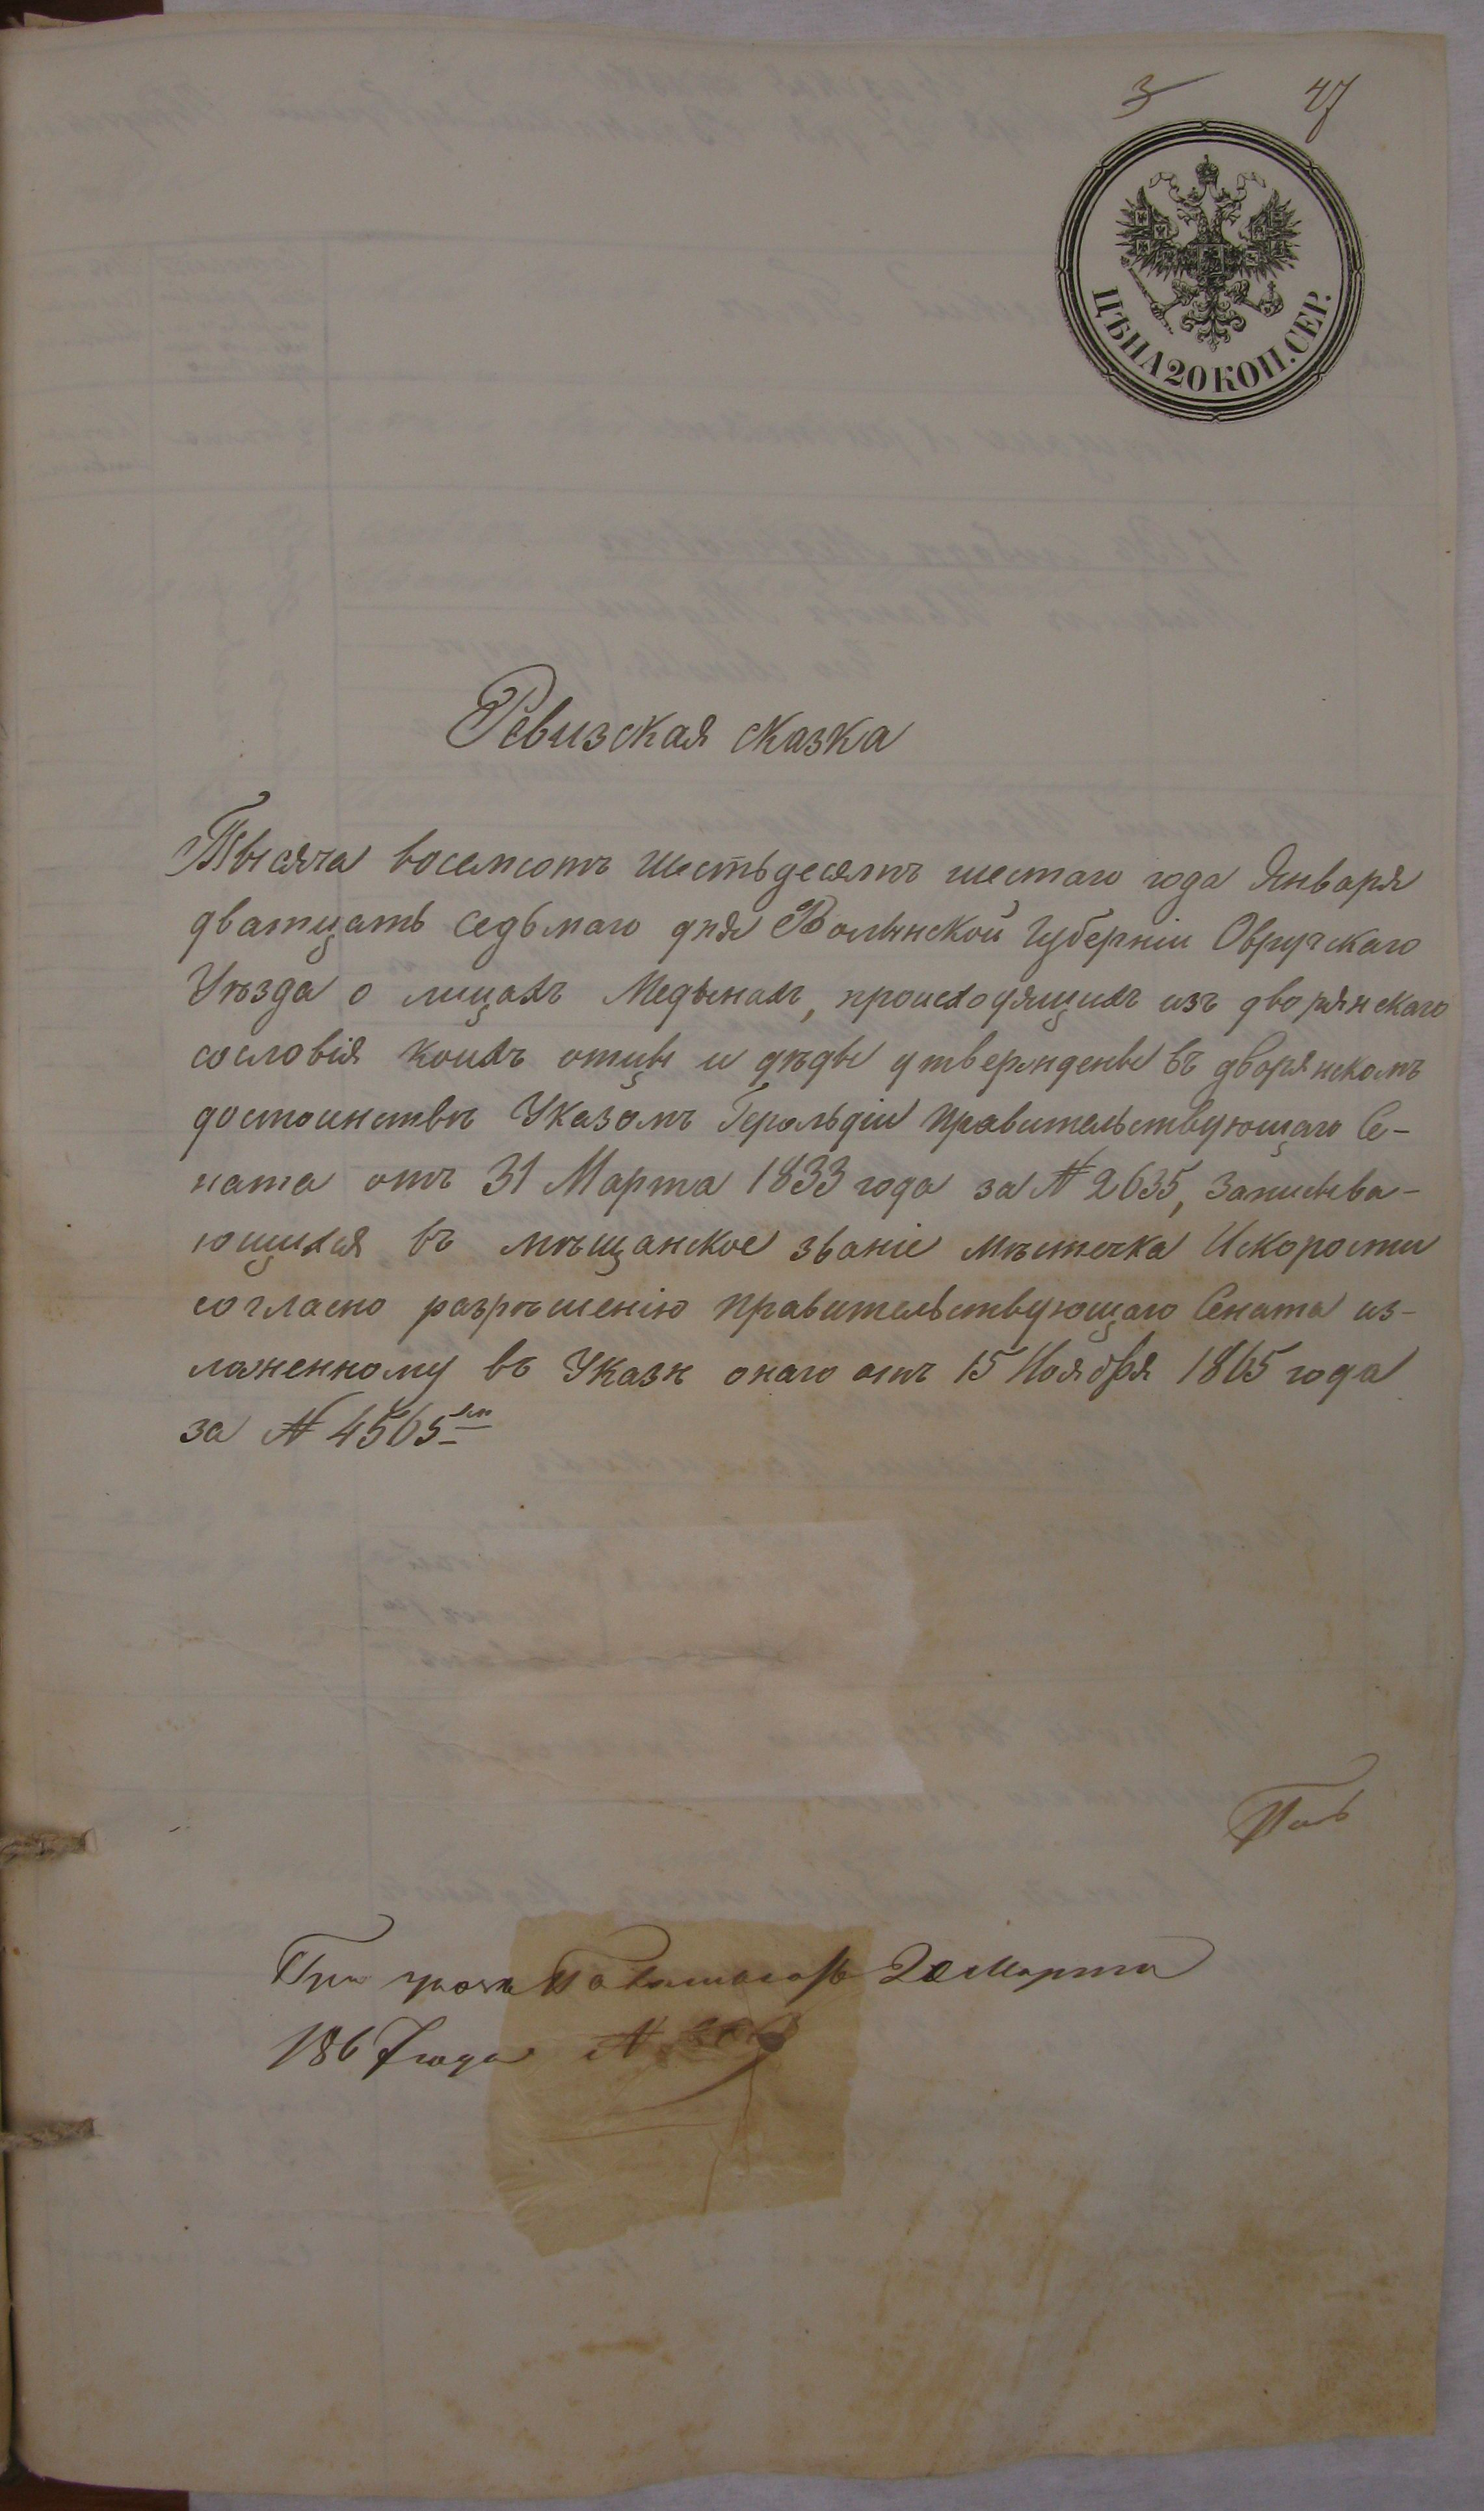 3 47
ЦѢНА 20 КОП. СЕР.
Ревизская сказка
Тысяча восемсотъ шестьдесятъ шестаго года Января
дватцать седьмаго дня Волынской Губерніи Овручскаго
Уѣзда о лицахъ Медынахъ, происходящихъ изъ дворянскаго
сословія коихъ отцы и дѣды утверждены въ дворянскомъ
достоинствѣ Указомъ Герольдіи Правительствующаго Се-
ната отъ 31 Марта 1833 года за № 2635, Записыва-
ющихся въ мѣщанское званіе мѣстечка Искорости
согласно разрѣшенію Правительствующаго Сената из-
ложенному въ Указѣ онаго отъ 15 Ноября 1865 года
за № 4565
При Марта
1867 года №